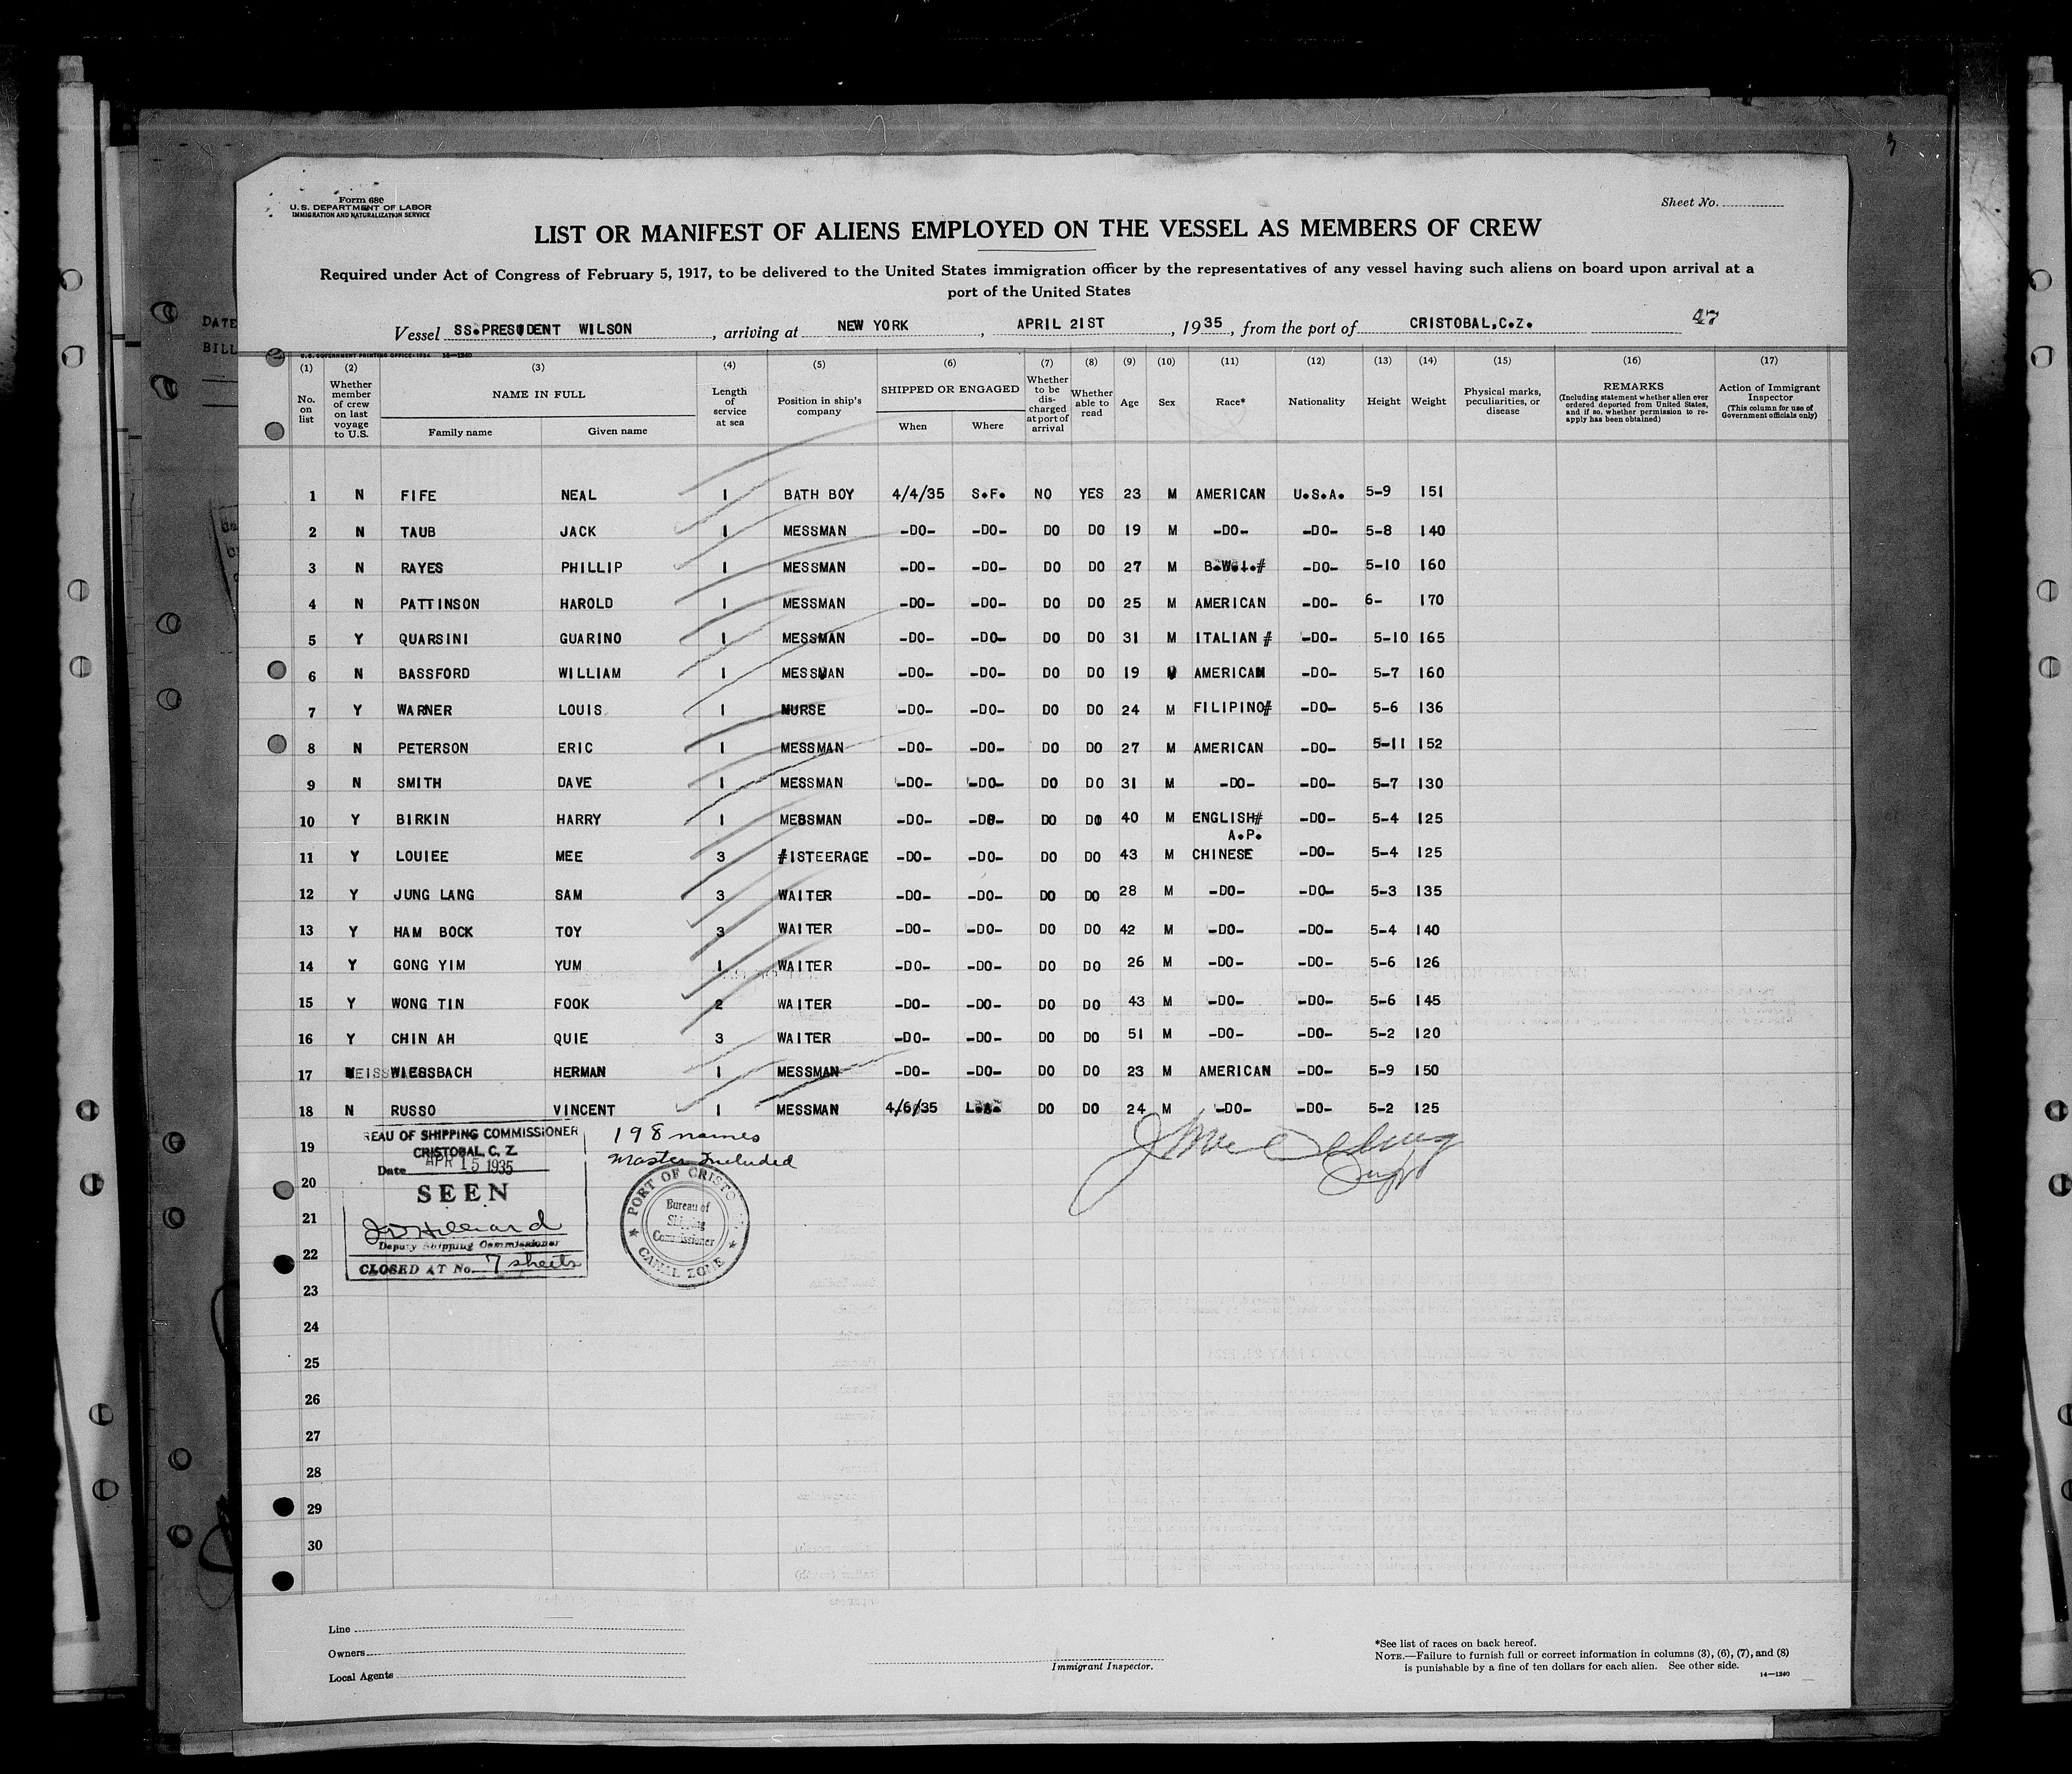 Form 680
U.S. DEPARTMENT OF LABOR
IMMIGRATION AND NATURALIZATION SERVICE
Sheet No.
LIST OR MANIFEST OF ALIENS EMPLOYED ON THE VESSEL AS MEMBERS OF CREW
Required under Act of Congress of February 5, 1917, to be delivered to the United States immigration officer by the representatives of any vessel having such aliens on board upon arrival at a
port of the United States
Vessel SS.PRESIDENT WILSON, arriving at NEW YORK, APRIL 21ST, 1935, from the port of CRISTOBAL,C.Z. 47
U.S. GOVERNMENT PRINTING OFFICE: 1934 14—1240
(1) No. on list (2) Whether member of crew on last voyage to U.S. (3) NAME IN FULL Family name Given name (4) Length of service at sea (5) Position in ship's company (6) SHIPPED OR ENGAGED When Where (7) Whether to be discharged at port of arrival (8) Whether able to read (9) Age (10) Sex (11) Race* (12) Nationality (13) Height (14) Weight (15) Physical marks, peculiarities, or disease (16) REMARKS (Including statement whether alien ever ordered deported from United States, and if so, whether permission to re-apply has been obtained) (17) Action of Immigrant Inspector (This column for use of Government officials only)
1 N FIFE NEAL 1 BATH BOY 4/4/35 S.F. NO YES 23 M AMERICAN U.S.A. 5-9 151
2 N TAUB JACK 1 MESSMAN -DO- -DO- DO DO 19 M -DO- -DO- 5-8 140
3 N RAYES PHILLIP 1 MESSMAN -DO- -DO- DO DO 27 M B.W.I.# -DO- 5-10 160
4 N PATTINSON HAROLD 1 MESSMAN -DO- -DO- DO DO 25 M AMERICAN -DO- 6- 170
5 Y QUARSINI GUARINO 1 MESSMAN -DO- -DO- DO DO 31 M ITALIAN # -DO- 5-10 165
6 N BASSFORD WILLIAM 1 MESSMAN -DO- -DO- DO DO 19 M AMERICAN -DO- 5-7 160
7 Y WARNER LOUIS 1 NURSE -DO- -DO- DO DO 24 M FILIPINO# -DO- 5-6 136
8 N PETERSON ERIC 1 MESSMAN -DO- -DO- DO DO 27 M AMERICAN -DO- 5-11 152
9 N SMITH DAVE 1 MESSMAN -DO- -DO- DO DO 31 M -DO- -DO- 5-7 130
10 Y BIRKIN HARRY 1 MESSMAN -DO- -DO- DO DO 40 M ENGLISH# -DO- 5-4 125
A.P.
11 Y LOUIEE MEE 3 #1STEERAGE -DO- -DO- DO DO 43 M CHINESE -DO- 5-4 125
12 Y JUNG LANG SAM 3 WAITER -DO- -DO- DO DO 28 M -DO- -DO- 5-3 135
13 Y HAM BOCK TOY 3 WAITER -DO- -DO- DO DO 42 M -DO- -DO- 5-4 140
14 Y GONG YIM YUM 1 WAITER -DO- -DO- DO DO 26 M -DO- -DO- 5-6 126
15 Y WONG TIN FOOK 2 WAITER -DO- -DO- DO DO 43 M -DO- -DO- 5-6 145
16 Y CHIN AH QUIE 3 WAITER -DO- -DO- DO DO 51 M -DO- -DO- 5-2 120
17 WIESSBACH HERMAN 1 MESSMAN -DO- -DO- DO DO 23 M AMERICAN -DO- 5-9 150
18 N RUSSO VINCENT 1 MESSMAN 4/6/35 L.A. DO DO 24 M -DO- -DO- 5-2 125
19
20
21
22
23
24
25
26
27
28
29
30
REAU OF SHIPPING COMMISSIONER
CRISTOBAL, C. Z.
Date APR 15 1935
SEEN
Hilliard
Deputy Shipping Commissioner
CLOSED AT No. 7 sheets
198 names
Master Included
PORT OF CRISTO
Bureau of
Shipping
Commissioner
CANAL ZONE
Line
Owners
Local Agents
Immigrant Inspector.
*See list of races on back hereof.
NOTE.—Failure to furnish full or correct information in columns (3), (6), (7), and (8)
is punishable by a fine of ten dollars for each alien. See other side.
14—1240
DATE
BILL